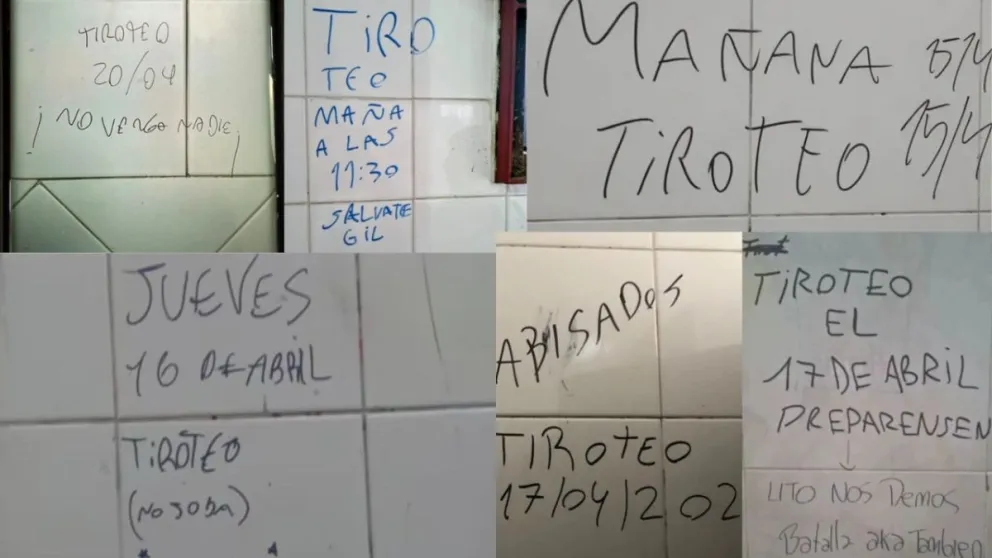 TIROTEO
20/04
¡NO VENGA NADIE¡
TiRO
TEO
MAÑA
A LAS
11:30
SALVATE
GIL
MAÑANA 15/4
TiROTEO 15/4
JUEVES
16 DE ABRIL
TiROTEO
(NO JODA)
ABISADOS
TIROTEO
17/04/202
TiROTEO
EL
17 DE ABRIL
PREPARENSEN
LITO NOS Demos
Batalla aka Tambien